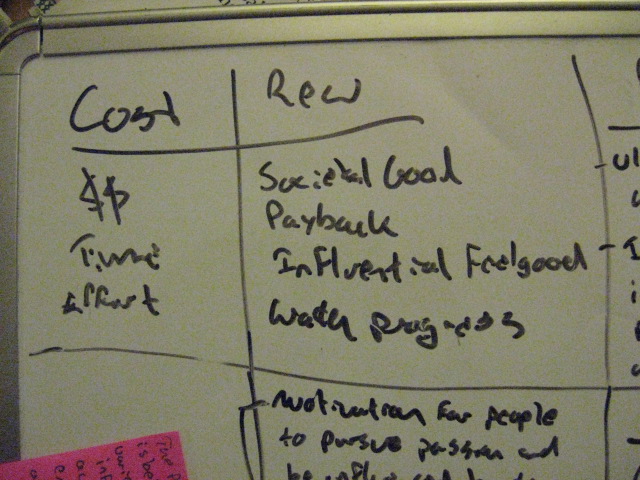 Cost
Rew
$$
Time
Effort
Societal Good
Payback
Influential Feelgood
Watch progress
- Motivation for people
to pursue passion and
be
The